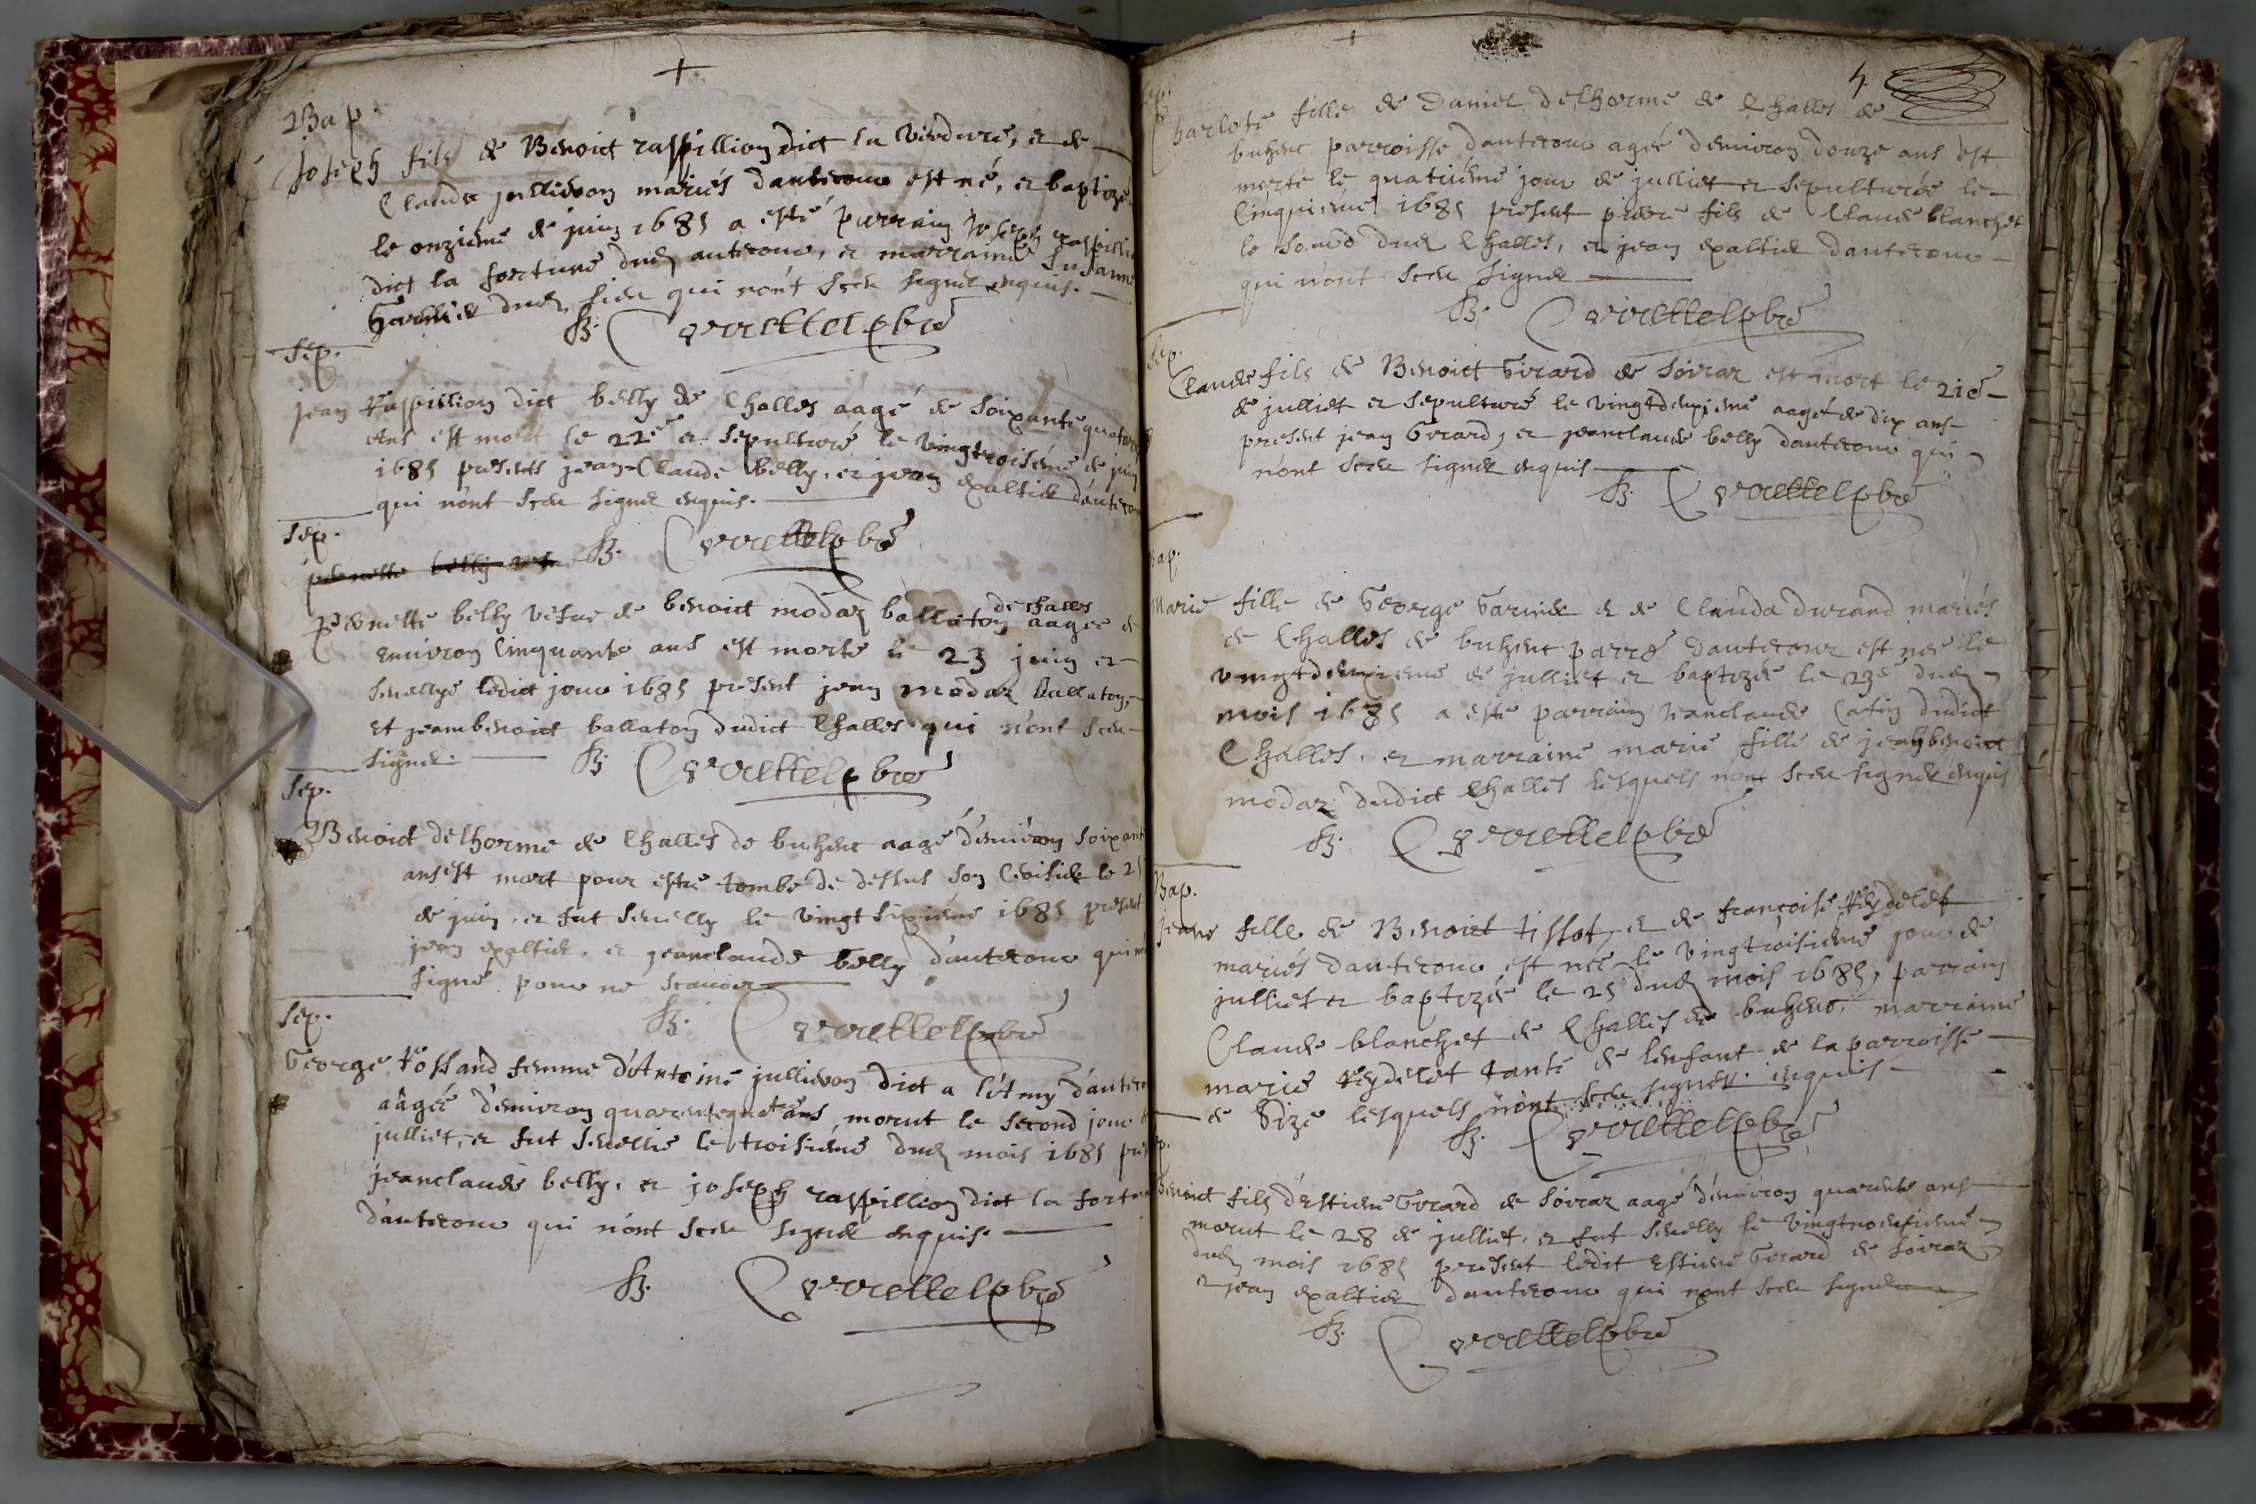 Bap.
Joseph fils de Benoict raspillion dict la verdure, et de
Claude jullievon mariés dautecour est né, et baptizé
le onzieme de juin 1685 a esté parrain Joseph raspillion
dict la fortune dud autecour, et marraine Susanne
dud lieu qui nont sceu signer enquis.
sep.
jean raspillion dict belly de Challes aagé de soixante quatorze
ans est mort le 22e et sepulturé le vingtroisieme de juin
1685 presents jean-Claude belly, et jean exaltier dautecour
qui nont sceu signer enquis.
sep.
pernette belly
Pernette belly vefve de benoict modaz ballaton de challes aagee de
environ cinquante ans est morte le 23 juin et
sevellye ledict jour 1685 present jean modaz ballaton,
et jeambenoict ballaton dudict Challes qui nont sceu
signer.
sep.
Benoict delhorme de Challes de buhenc aagé denviron soixante
ans est mort pour estre tombé de dessus son cerisier le 25
de juin, et fut sevelly le vingt sixieme 1685 present
jean exaltier, et jeanclaude belly dautecour qui nont
signé pour ne scavoir
sep.
George rossand femme d'Antoine jullievon dict a l'atmy dautecour
aagée denviron quarentequatre ans, morut le second jour de
julliet, et fut sevellie le troisieme dud mois 1685 present
jeanclaude belly, et joseph raspillion dict la fortune
dautecour qui nont sceu signer enquis.
4
sep.
Charlote fille de Daniel delhorme de Challes de
buhenc parroisse dautecour agée denviron douze ans est
morte le quatrieme jour de julliet et sepulturée le
cinquieme 1685 present pierre fils de Claude blanchet
le sourd dud Challes, et jean exaltier dautecour
qui nont sceu signer
sep.
Claude fils de Benoict Girard de soiraz est mort le 21e
de julliet et sepulturé le vingtdeuxieme aagé de dix ans
present jean Girard, et jeanclaude belly dautecour qui
nont sceu signer enquis
Bap.
Marie fille de George Garnier et de Clauda durand mariés
de Challes de buhenc parre dautecour est nee le
vingtdeuxieme de julliet et baptizée le 23e dud
mois 1685 a esté parrain jeanclaude Catin dudict
Challes, et marraine marie fille de jeanbenoict
modaz dudict Challes lesquels nont sceu signer enquis
Bap.
jeane fille de Benoict tissot, et de françoise reydelet
mariés dautecour est née le vingtroisieme jour de
julliet et baptizée le 25 dud mois 1685, parrain
Claude blanchet de Challes de buhenc, marraine
marie reydelet tante de lenfant de la parroisse
de Size lesquels nont sceu signer enquis
sep.
Benoict fils d'Estiene Girard de soiraz aagé denviron quarente ans
morut le 28 de julliet, et fut sevelly le vingtneufieme
dud mois 1685 present ledit Estiene Girard de soiraz
et jean exaltier dautecour qui nont sceu signer